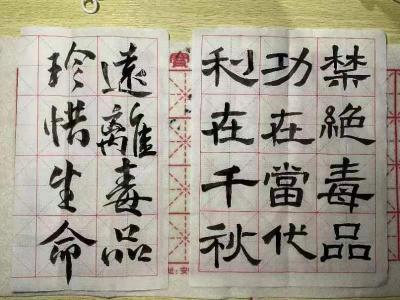 禁絶毒品
功在當代
利在千秋
遠離毒品
珍惜生命